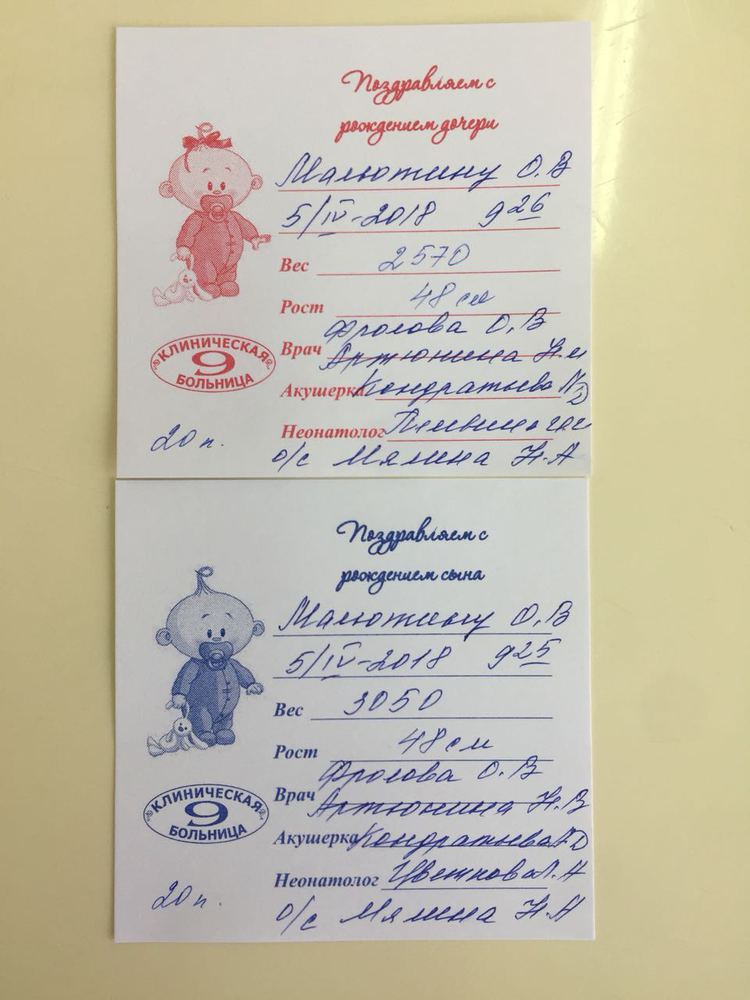 Поздравляем с
рождением дочери
Малютину О.В
5/IV-2018 9 26
Вес 2570
Рост 48 см
Фролова О.В
Врач Артюнина Н.
КЛИНИЧЕСКАЯ
9
БОЛЬНИЦА
Акушерка Кондратьева
Неонатолог
20 п.
о/с Мялина Н.А
Поздравляем с
рождением сына
Малютину О.В
5/IV-2018 9 25
Вес 3050
Рост 48 см
Фролова О.В
Врач Артюнина Н.В
КЛИНИЧЕСКАЯ
9
БОЛЬНИЦА
Акушерка Кондратьева
Неонатолог Цветкова
20 п.
о/с Мялина Н.А